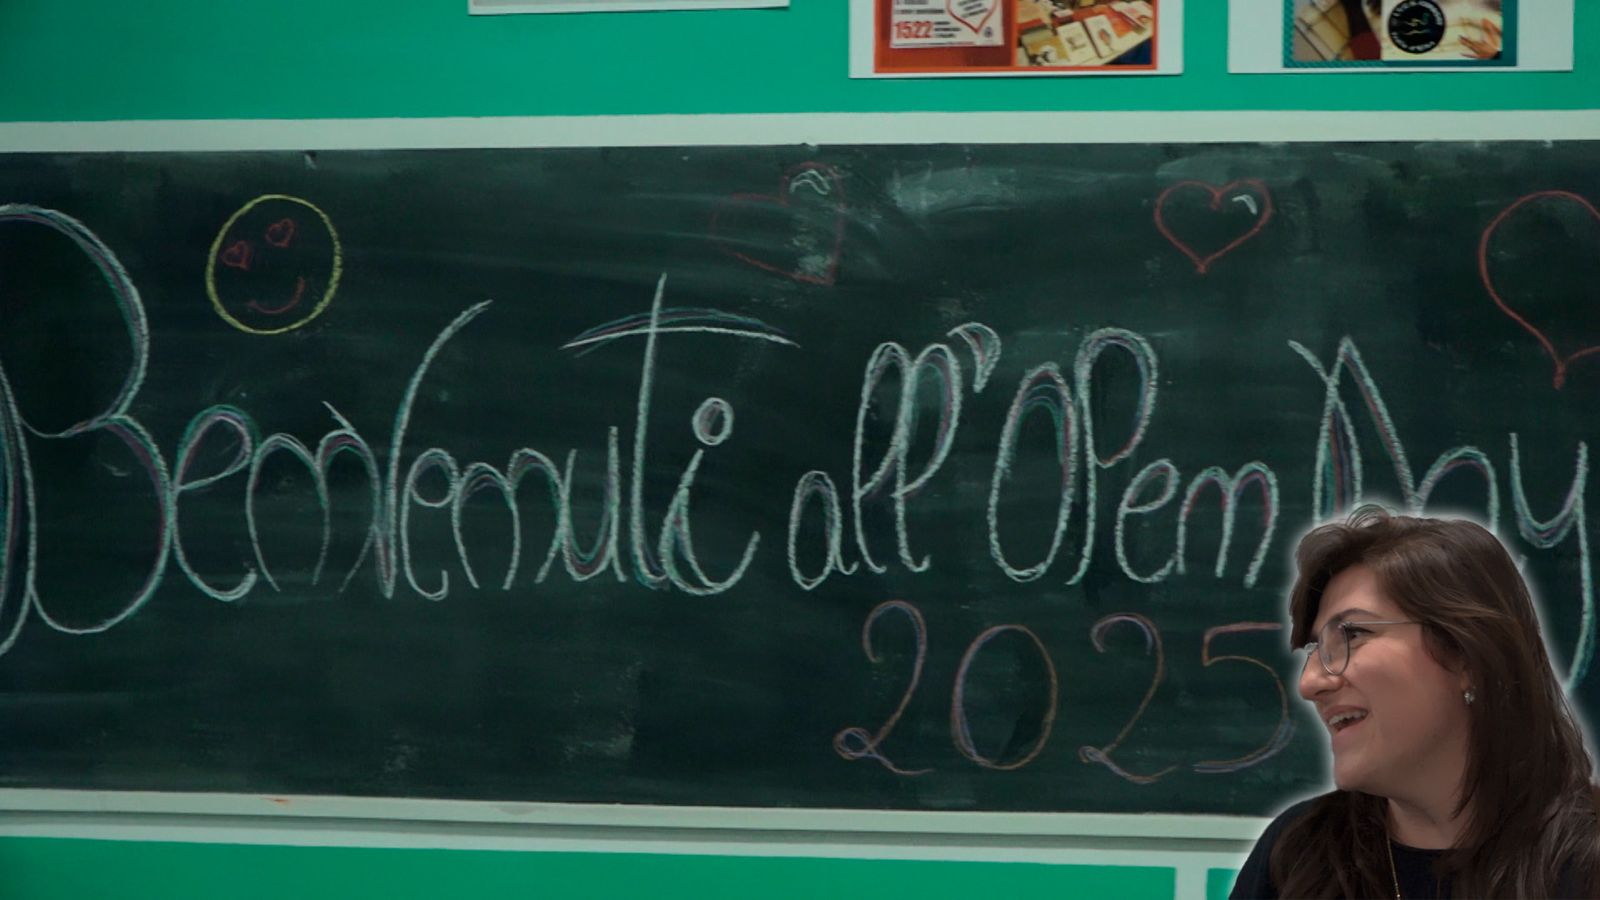 1522
Benvenuti all'Open Day
2025